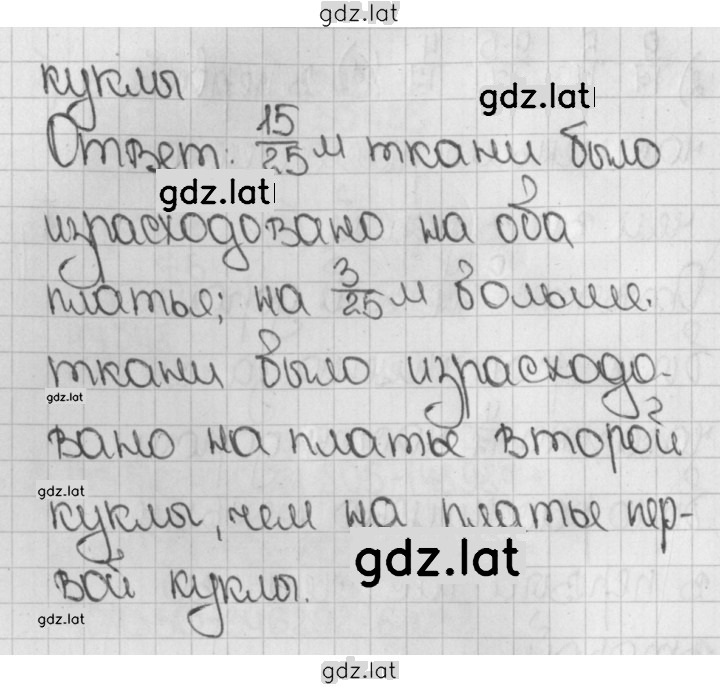 gdz.lat
куклы
gdz.lat
Ответ. 15/25 м ткани было
gdz.lat
израсходовано на оба
платья; на 3/25 м больше.
ткани было израсходо-
gdz.lat
вано на платье второй
gdz.lat
куклы, чем на платье пер-
gdz.lat
вой куклы.
gdz.lat
gdz.lat